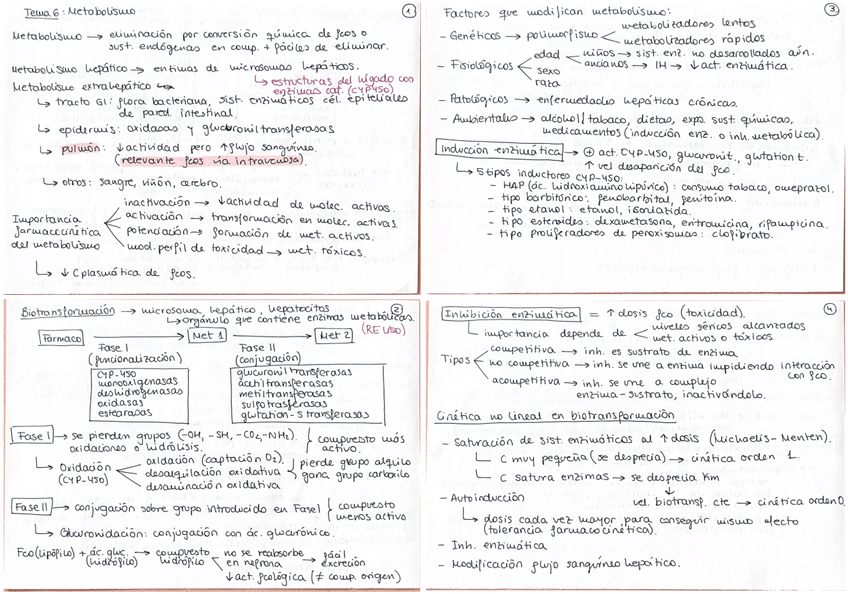 Tema 6: Metabolismo
1
Metabolismo → eliminación por conversión química de fcos o
sust. endógenas en comp. + fáciles de eliminar.
Metabolismo hepático → enzimas de microsomas hepáticos.
↳ estructuras del hígado con
enzimas cat. (CYP450)
Metabolismo extrahepático
↳ tracto GI: flora bacteriana, sist. enzimáticos cél. epiteliales
de pared intestinal.
↳ epidermis: oxidasas y glucuroniltransferasas
↳ pulmón: ↓ actividad pero ↑ flujo sanguíneo
(relevante fcos vía intravenosa).
↳ otros: sangre, riñón, cerebro.
Importancia
farmacocinética
del metabolismo
inactivación → ↓ actividad de molec. activos.
activación → transformación en molec. activas.
potenciación → formación de met. activos.
mod. perfil de toxicidad → met. tóxicos.
↳ ↓ C plasmática de fcos.
Biotransformación → microsoma hepático, hepatocitos
2
↳ orgánulo que contiene enzimas metabólicas.
(RE LISO)
Fármaco → Met 1 → Met 2
Fase I
(funcionalización)
CYP-450
monooxigenasas
deshidrogenasas
oxidasas
estearasas
Fase II
(conjugación)
glucuronil transferasas
acetiltransferasas
metiltransferasas
sulfotransferasas
glutation-s transferasas
Fase I → se pierden grupos (-OH, -SH, -CO2, -NH2).
oxidaciones o hidrólisis.
compuesto más
activo.
↳ Oxidación
(CYP-450)
oxidación (captación O2).
desalquilación oxidativa
desaminación oxidativa
pierde grupo alquilo
gana grupo carbonilo
Fase II → conjugación sobre grupo introducido en Fase I
compuesto
menos activo
↳ Glucuronidación: conjugación con ác. glucurónico.
Fco (lipófilo) + ác. gluc. (hidrófilo) → compuesto hidrófilo
no se reabsorbe
en nefrona → fácil
excreción
↓ act. fcológica (≠ comp. origen)
Factores que modifican metabolismo:
3
- Genéticos → polimorfismo
metabolizadores lentos
metabolizadores rápidos
- Fisiológicos
edad
sexo
raza
niños → sist. enz. no desarrollados aún.
ancianos → IH → ↓ act. enzimática.
- Patológicos → enfermedades hepáticas crónicas.
- Ambientales → alcohol/tabaco, dietas, expo. sust. químicas,
medicamentos (inducción enz. o inh. metabólica).
Inducción enzimática → ⊕ act. CYP-450, glucuronit., glutation t.
↑ vel desaparición del fco.
↳ 5 tipos inductores CYP-450:
- HAP (ác. hidroxiaminolipúrico): consumo tabaco, omeprazol.
- tipo barbitúrico: fenobarbital, fenitoína.
- tipo etanol: etanol, isoniatida.
- tipo esteroides: dexametasona, eritromicina, rifampicina.
- tipo proliferadores de peroxisomas: clofibrato.
Inhibición enzimática = ↑ dosis fco (toxicidad).
4
↳ importancia depende de
niveles séricos alcanzados
met. activos o tóxicos
Tipos
competitiva → inh. es sustrato de enzima
no competitiva → inh. se une a enzima impidiendo interacción
con fco.
acompetitiva → inh. se une a complejo
enzima-sustrato, inactivándolo.
Cinética no lineal en biotransformación
- Saturación de sist. enzimáticos al ↑ dosis (Michaelis-Menten).
↳ C muy pequeña (se desprecia) → cinética orden 1.
↳ C satura enzimas → se desprecia Km
↓
vel. biotransf. cte → cinética orden 0.
- Autoinducción
↳ dosis cada vez mayor para conseguir mismo efecto
(tolerancia farmacocinética).
- Inh. enzimática
- Modificación flujo sanguíneo hepático.